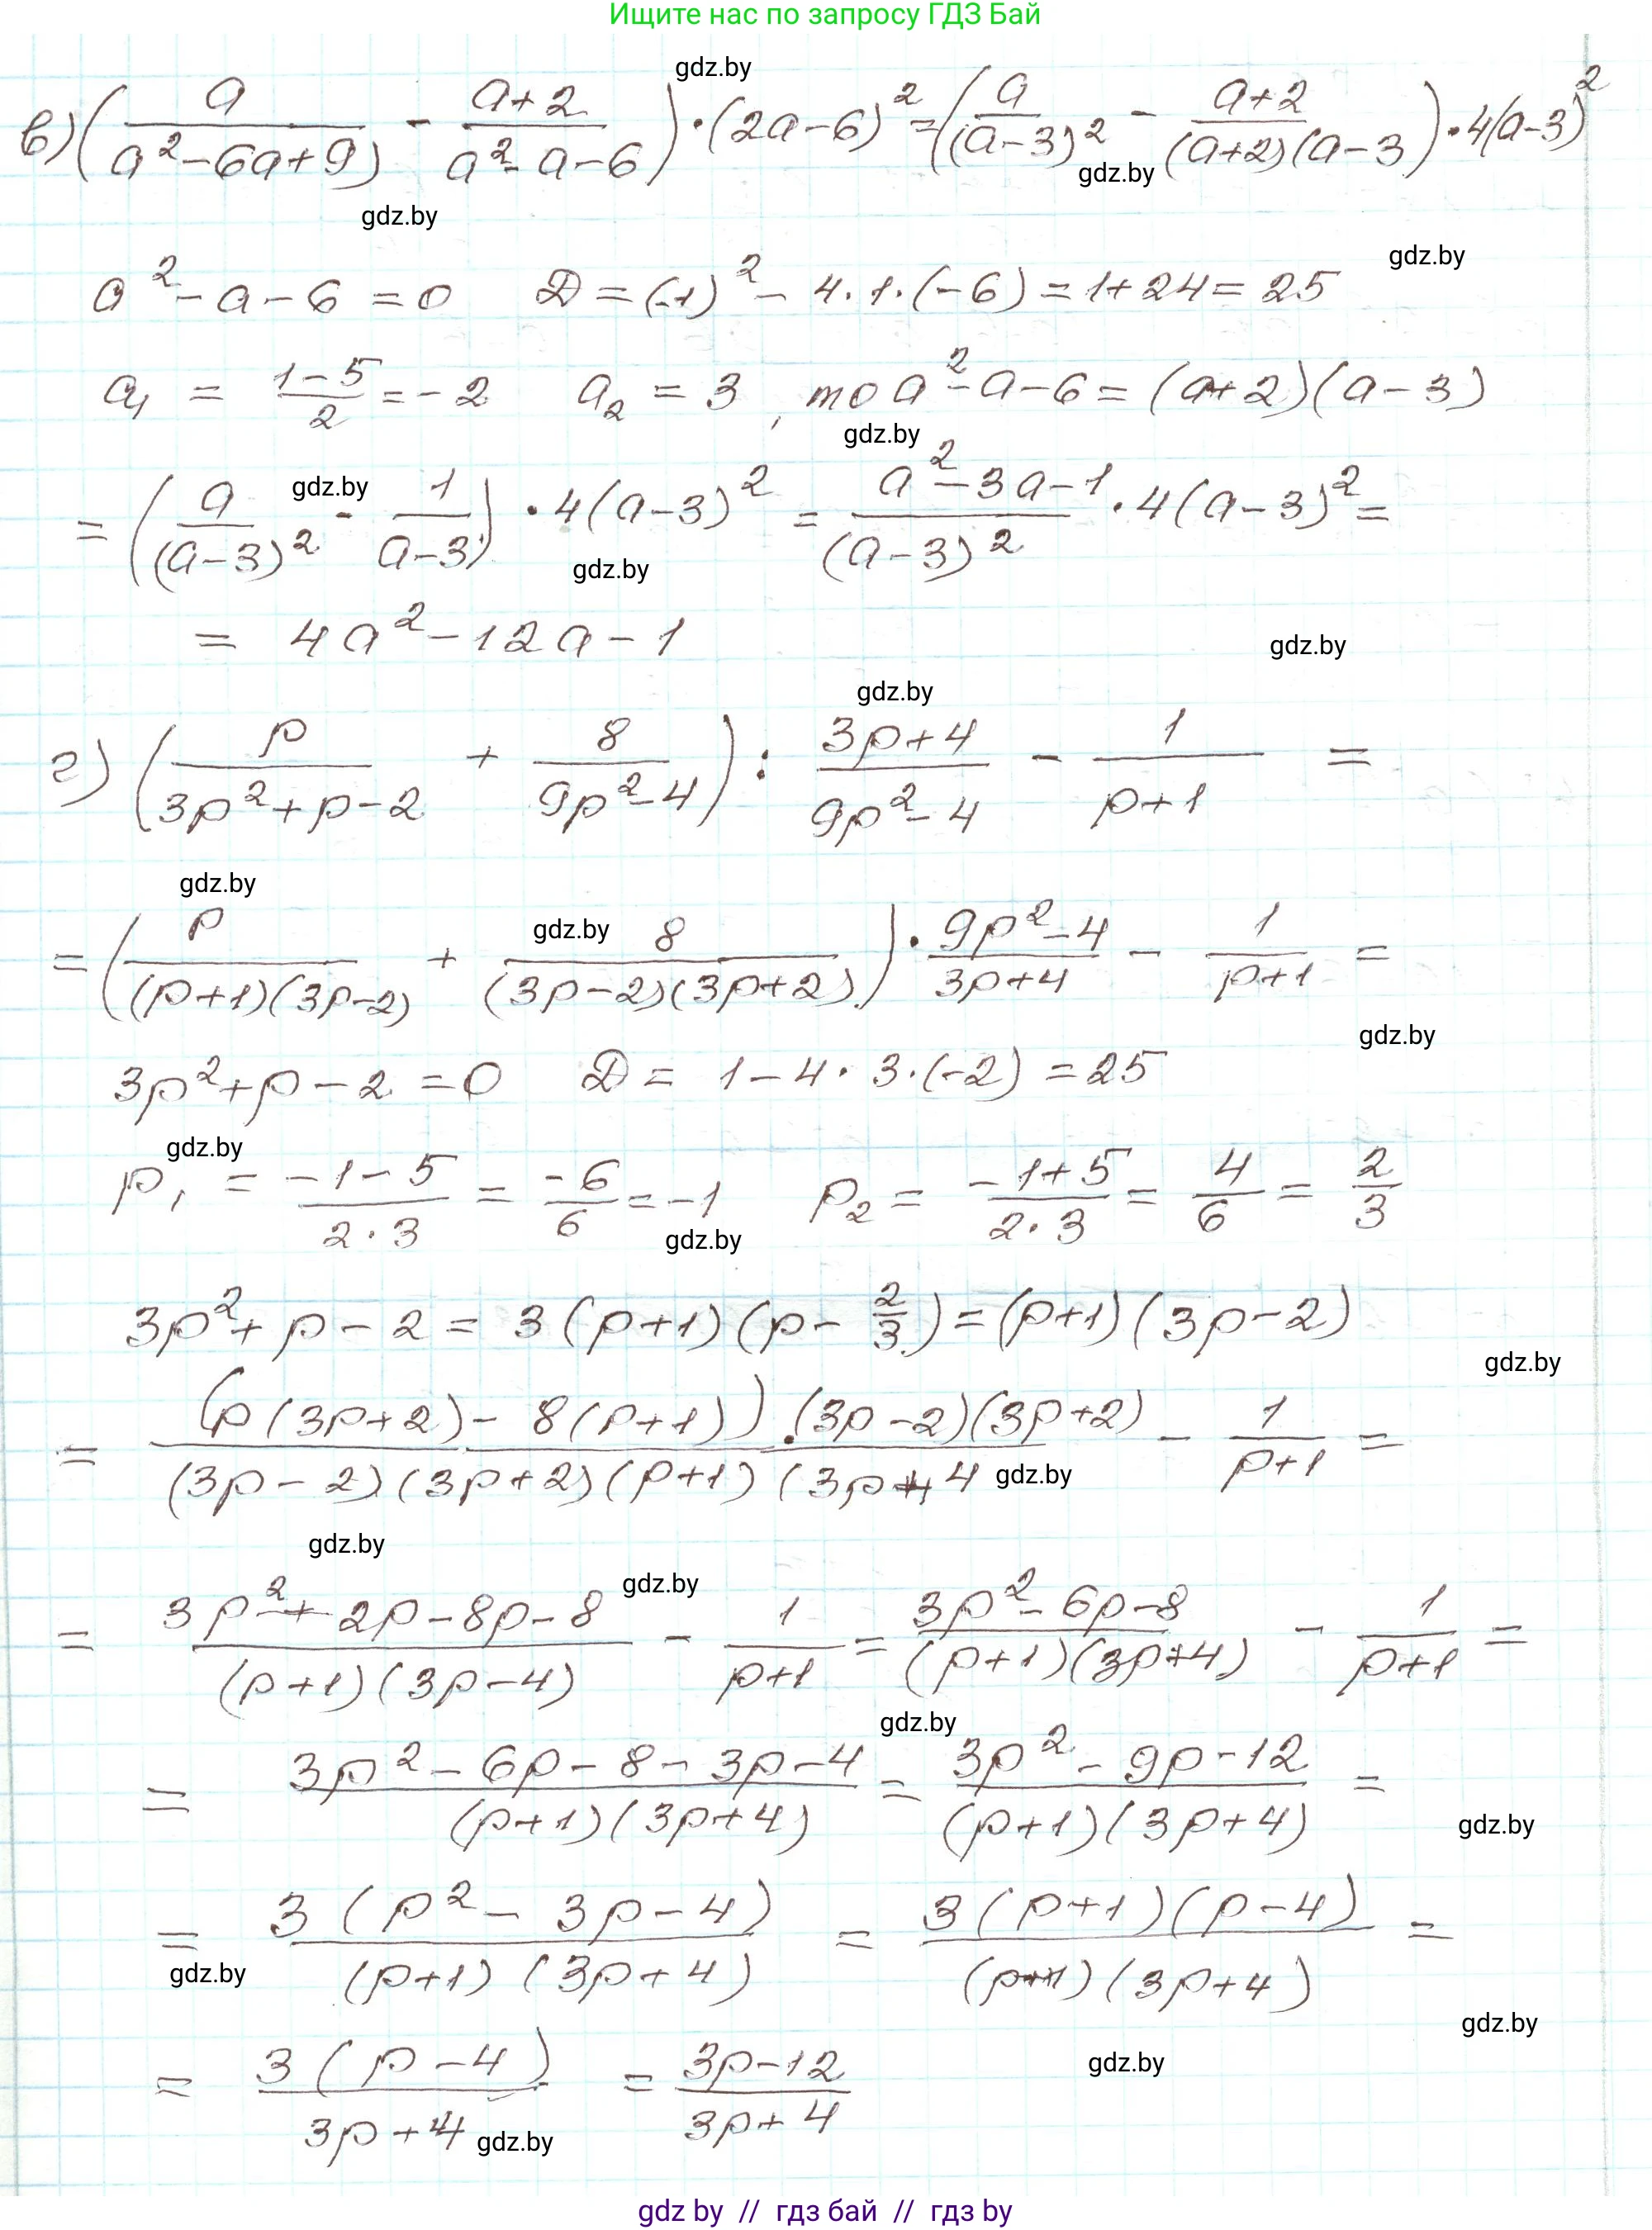 Ищите нас по запросу ГДЗ Бай
gdz.by
в) (a/(a²-6a+9) - (a+2)/(a²-a-6)) · (2a-6)² = (a/(a-3)² - (a+2)/((a+2)(a-3)) · 4(a-3)²
gdz.by
gdz.by
gdz.by
a²-a-6=0 D=(-1)²-4·1·(-6)=1+24=25
a₁ = (1-5)/2 = -2 a₂ = 3, то a²-a-6=(a+2)(a-3)
gdz.by
= (a/(a-3)² - 1/(a-3)) · 4(a-3)² = (a²-3a-1)/(a-3)² · 4(a-3)² =
gdz.by
gdz.by
= 4a²-12a-1
gdz.by
gdz.by
г) (p/(3p²+p-2) + 8/(9p²-4)) : (3p+4)/(9p²-4) - 1/(p+1) =
gdz.by
gdz.by
= (p/((p+1)(3p-2)) + 8/((3p-2)(3p+2))) · (9p²-4)/(3p+4) - 1/(p+1) =
gdz.by
3p²+p-2=0 D = 1-4·3·(-2)=25
gdz.by
p₁ = (-1-5)/(2·3) = -6/6 = -1 p₂ = (-1+5)/(2·3) = 4/6 = 2/3
gdz.by
3p²+p-2 = 3(p+1)(p-2/3)=(p+1)(3p-2)
gdz.by
= (p(3p+2)-8(p+1))·(3p-2)(3p+2)/((3p-2)(3p+2)(p+1)(3p+4 - 1/(p+1) =
gdz.by
gdz.by
gdz.by
= (3p²+2p-8p-8)/((p+1)(3p-4)) - 1/(p+1) = (3p²-6p-8)/((p+1)(3p+4)) - 1/(p+1) =
gdz.by
= (3p²-6p-8-3p-4)/((p+1)(3p+4)) = (3p²-9p-12)/((p+1)(3p+4)) =
gdz.by
= 3(p²-3p-4)/((p+1)(3p+4)) = 3(p+1)(p-4)/((p+1)(3p+4)) =
gdz.by
gdz.by
= 3(p-4)/(3p+4) = (3p-12)/(3p+4)
gdz.by
gdz.by
gdz by // гдз бай // гдз by